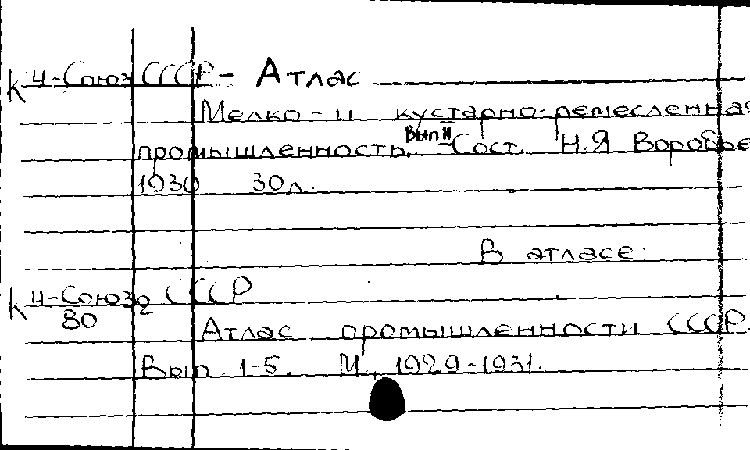 К 4-Союз СССР - Атлас
Мелко- и кустарно-ремесленная
промышленность. Вып II - Сост. Н.Я Воробье
1930 30л.
В атласе:
К 4-Союз СССР
80
Атлас промышленности СССР.
Вып. 1-5. М., 1929-1931.